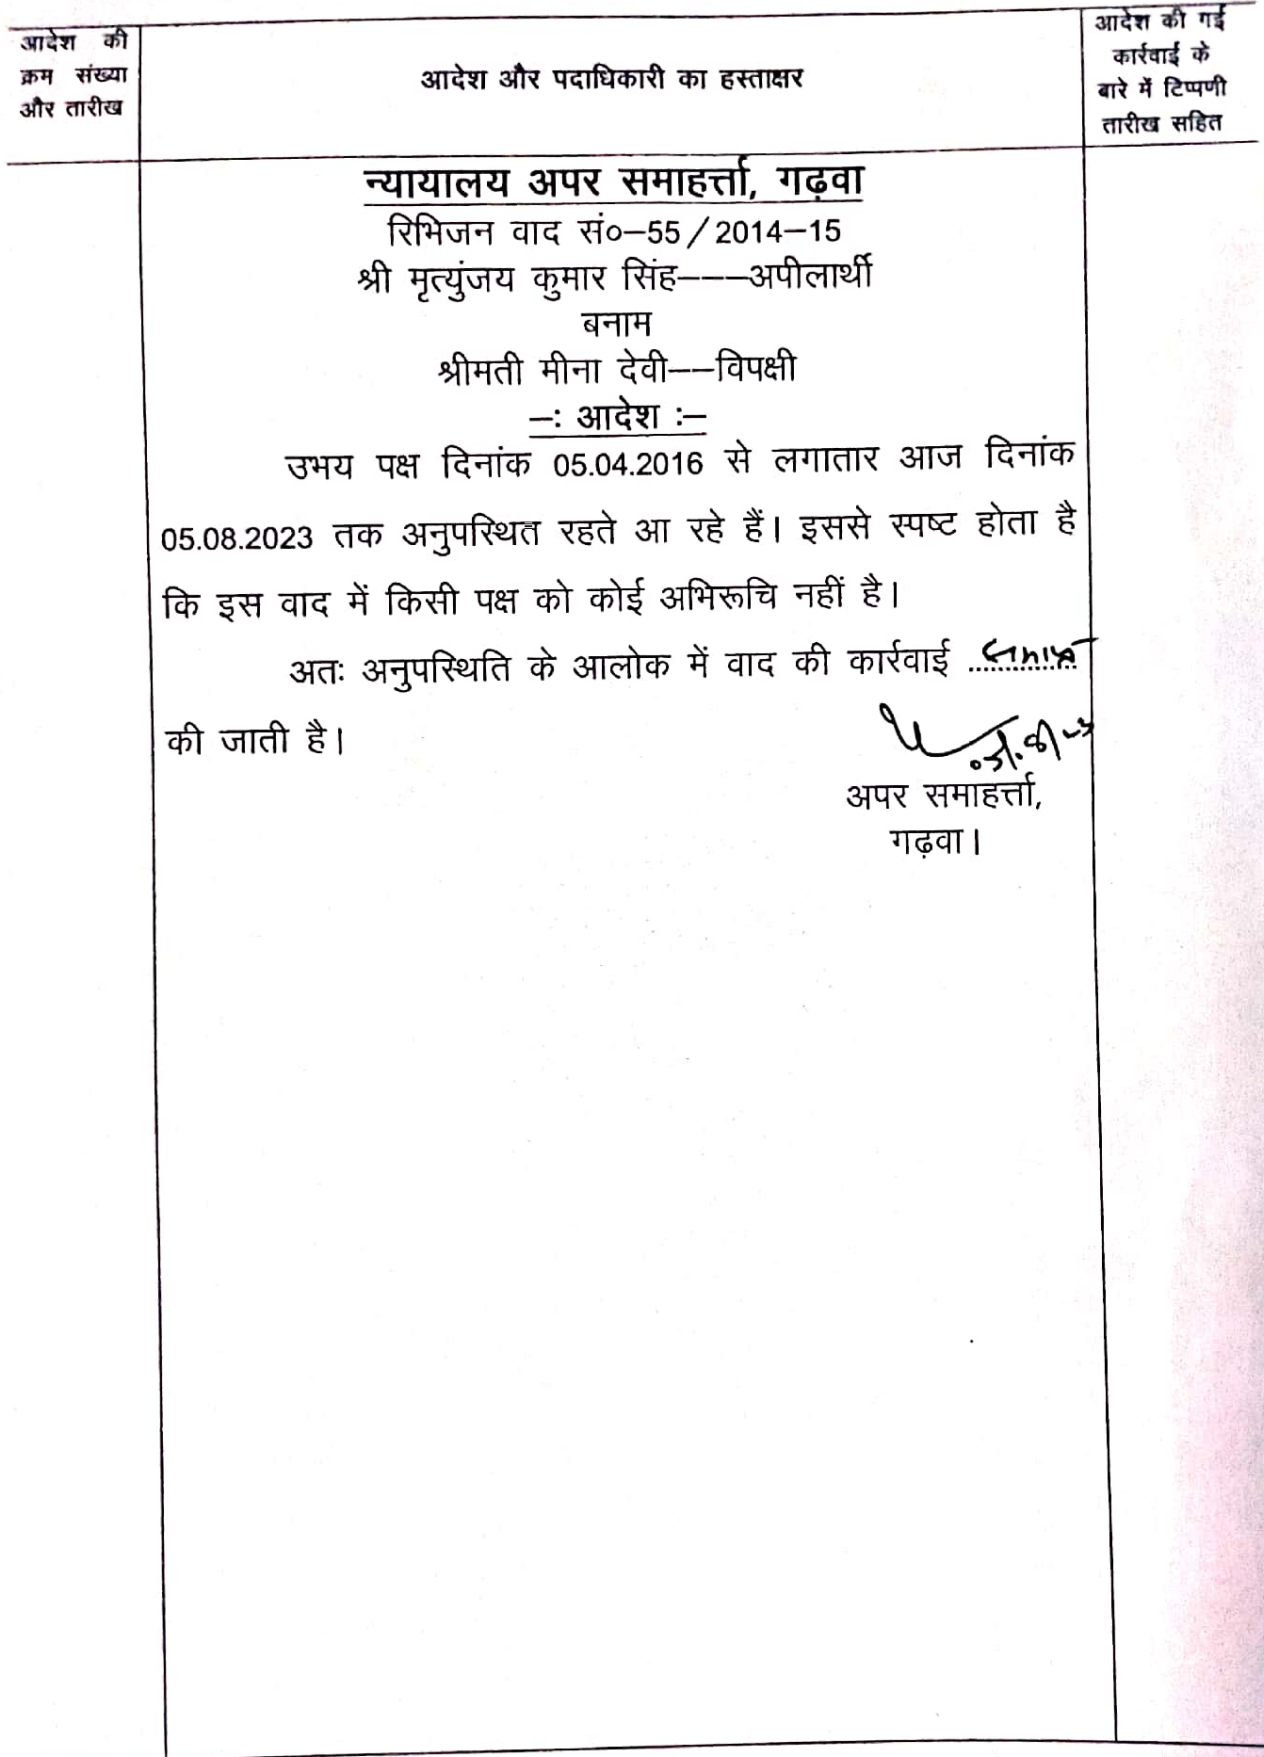 आदेश की
क्रम संख्या
और तारीख
आदेश और पदाधिकारी का हस्ताक्षर
आदेश की गई
कार्रवाई के
बारे में टिप्पणी
तारीख सहित
न्यायालय अपर समाहर्त्ता, गढ़वा
रिभिजन वाद सं०–55/2014–15
श्री मृत्युंजय कुमार सिंह–––अपीलार्थी
बनाम
श्रीमती मीना देवी––विपक्षी
–: आदेश :–
उभय पक्ष दिनांक 05.04.2016 से लगातार आज दिनांक
05.08.2023 तक अनुपस्थित रहते आ रहे हैं। इससे स्पष्ट होता है
कि इस वाद में किसी पक्ष को कोई अभिरूचि नहीं है।
अतः अनुपस्थिति के आलोक में वाद की कार्रवाई समाप्त
की जाती है।
अपर समाहर्त्ता,
गढ़वा।